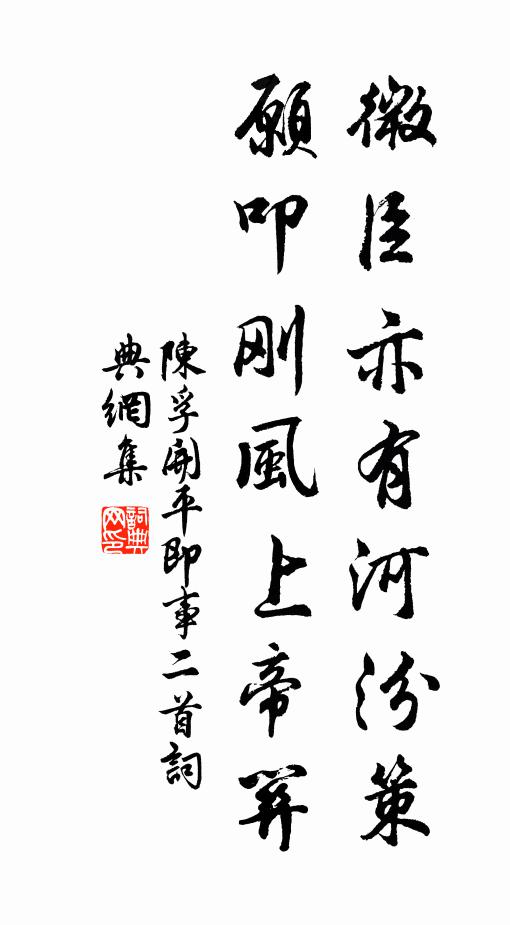 微臣亦有河汾策
願叩刚風上帝關
陳孚開平即事二首詞
典網集
詞典網印